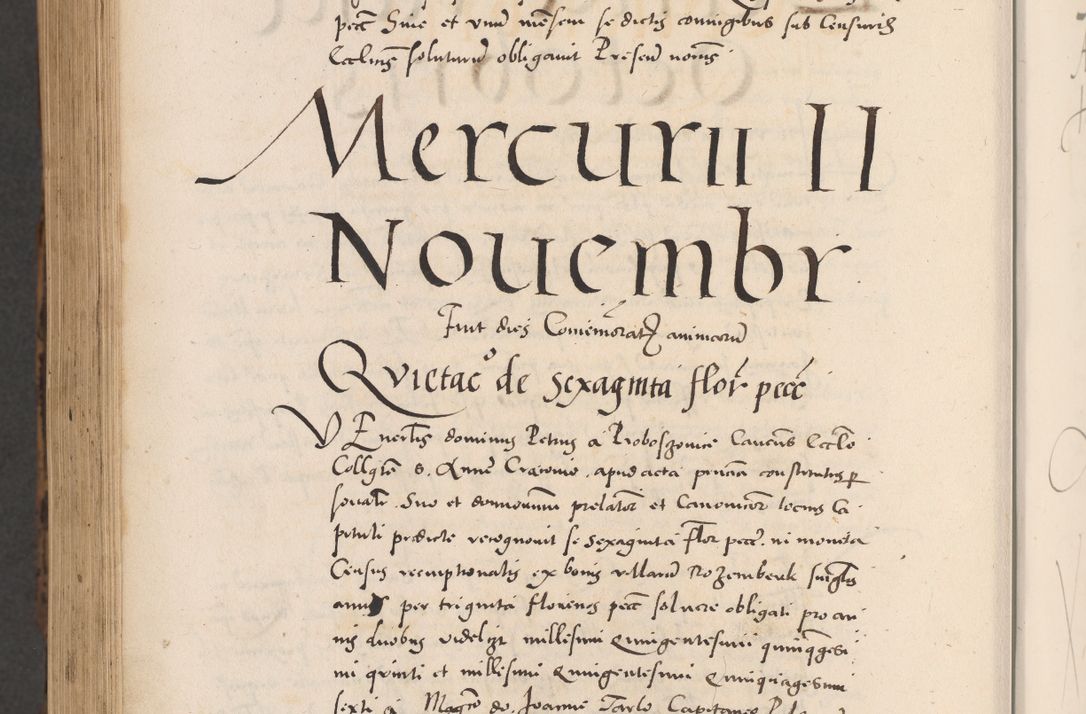 pecc Sive et unum mensem se dictis coniugibus sub Censuris
Ecclicis soluturum obligavit Presen nonis
Mercurii II
Nouembr
Fuit dies Comemorat animarum
Quietac° de sexaginta flor pecc
VEnerlis dominus Petrus a Proboszovice Cancus Eccle
Collgte s. Anne Cracovie, apud acta presencia constitutus per
sonalr. Suo et dominorum prelator et Canonicor tocius Ca
pituli predicte recognovit se sexaginta Flor pecc. in moneta
Census reemptionalis ex bonis villarum Rozemberk singlis
annis per triginta florenos pecc solvere obligati pro an
nis duobus videlizt millesimi Quingentesimi quinqgesi
mi quinti et millesimi Quingentesimi Quinquagesimi
sexti a Magco do. Joanne Tarlo Capitaneo